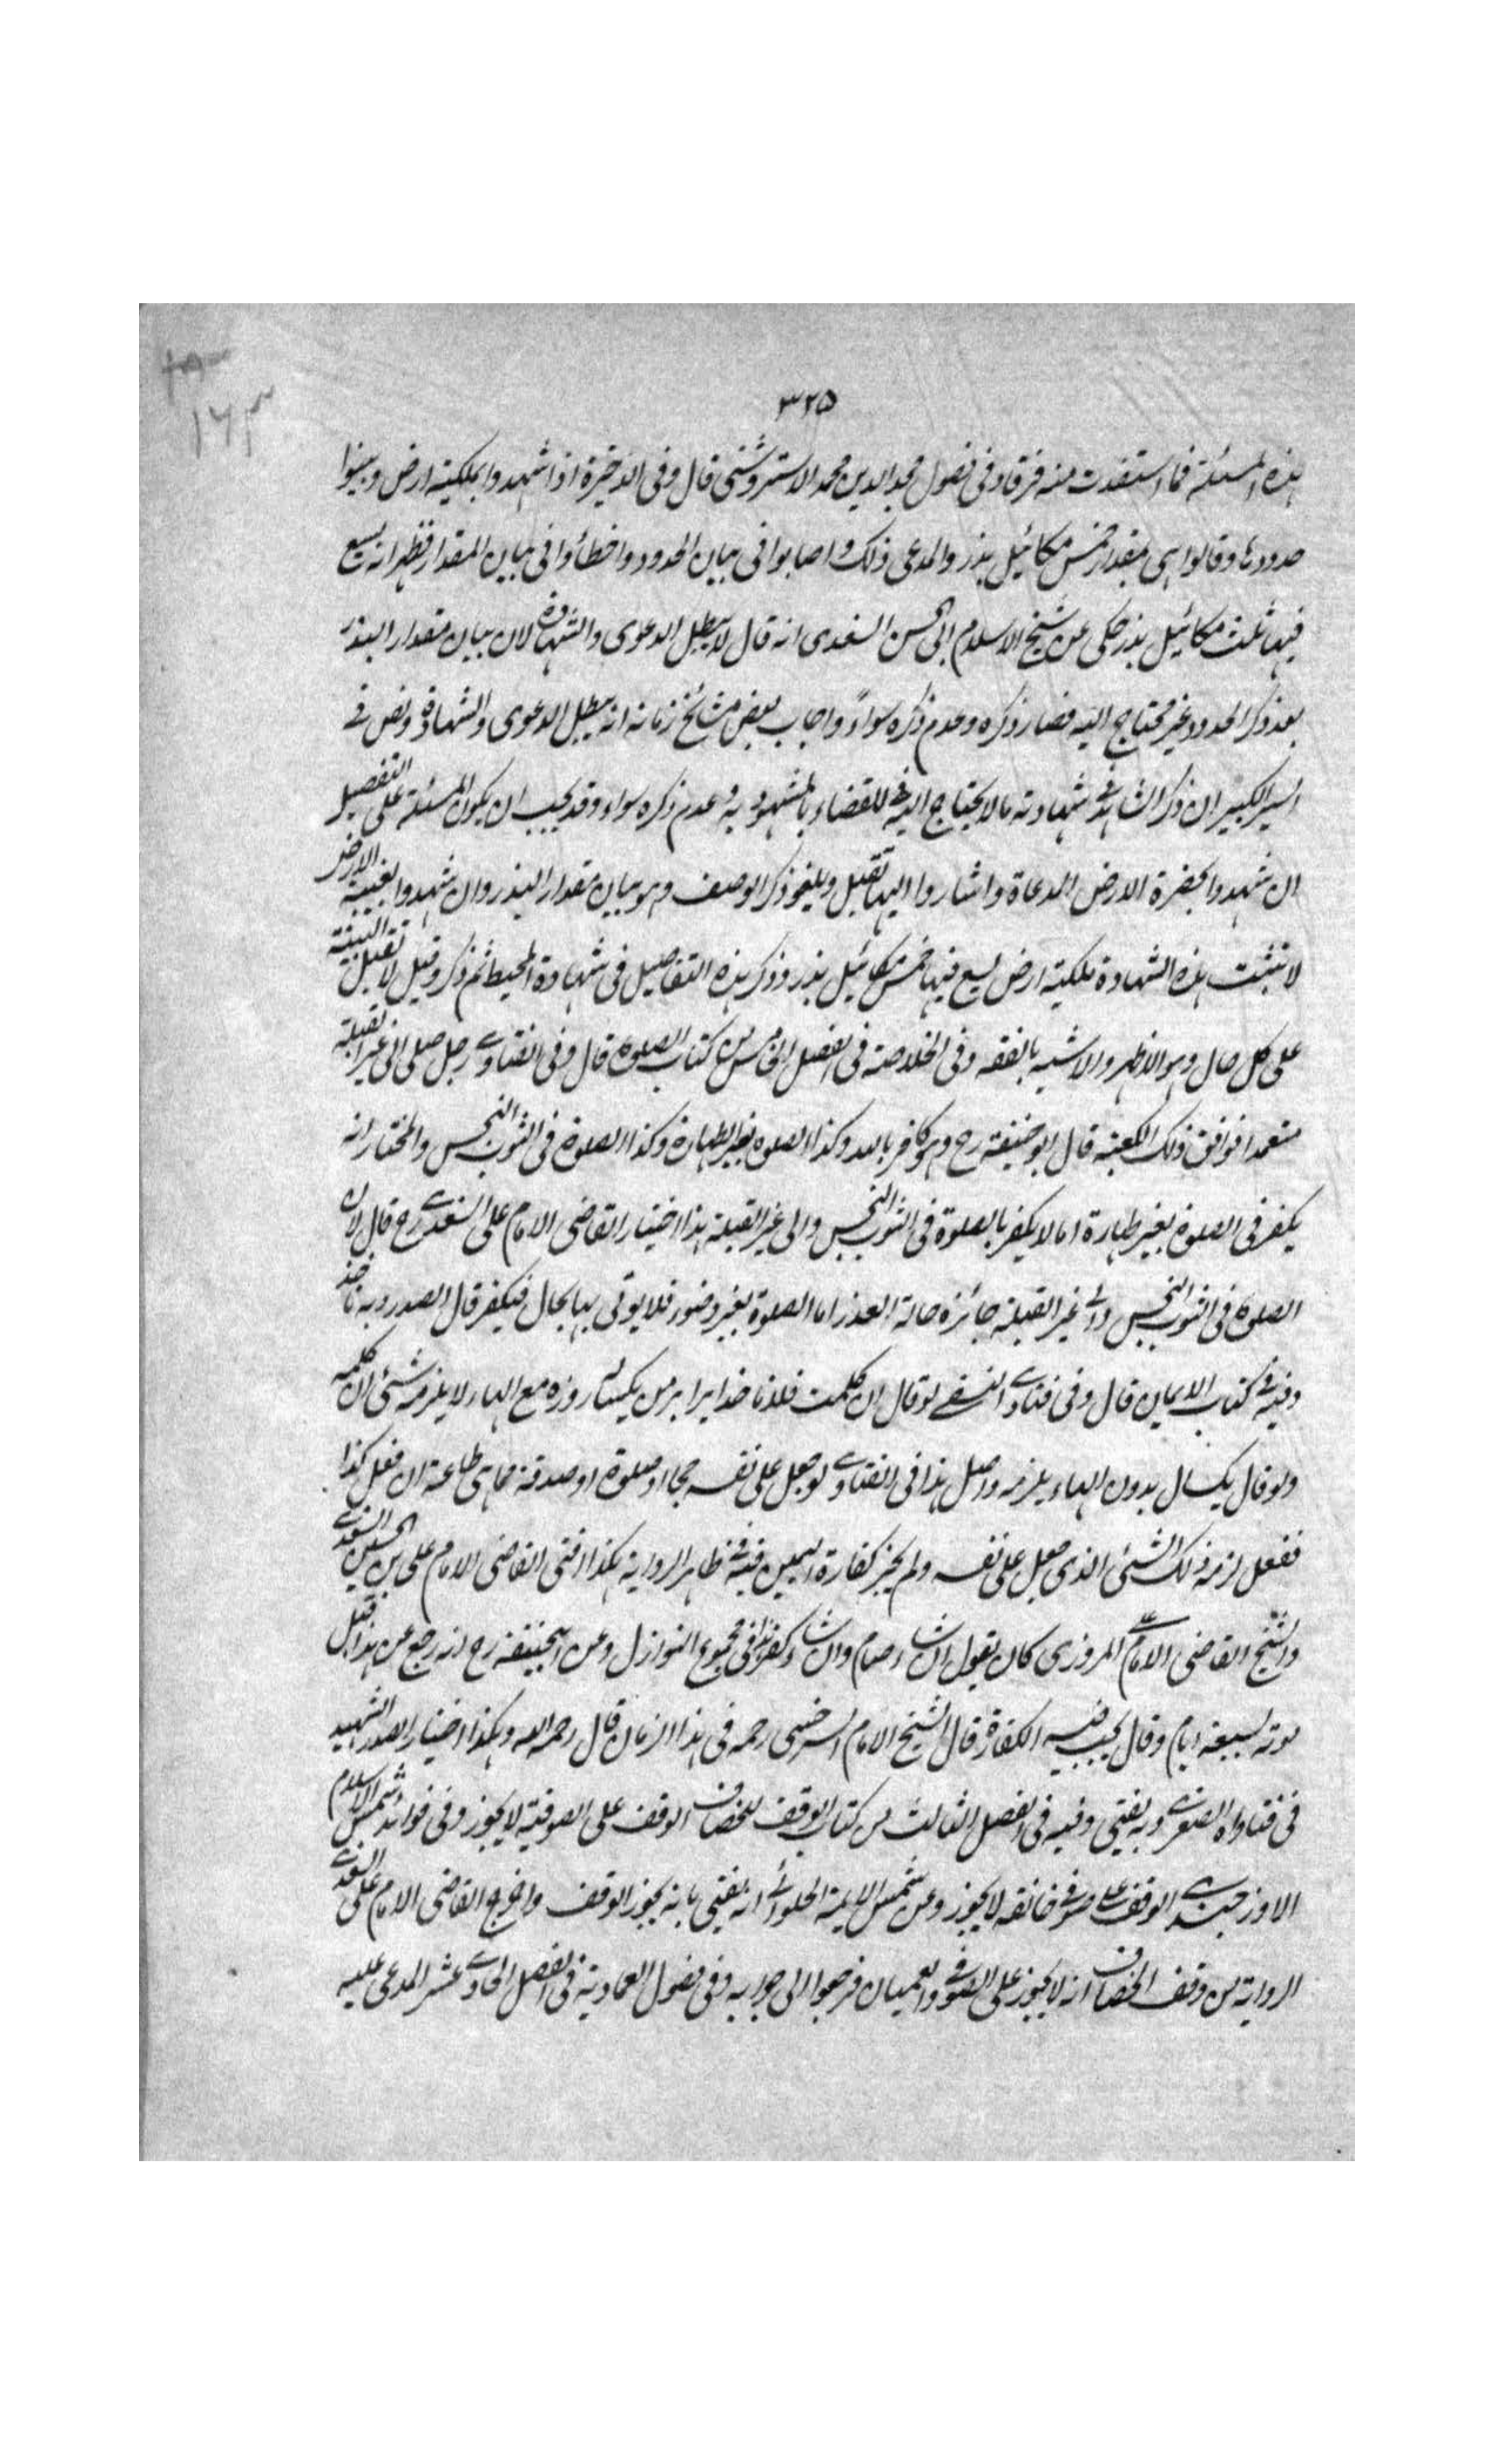 ٣٢٥
هذه المسئلة فما استفدت منه فرقا وفى فصول مجد الدين محمد الاستروشنى قال وفى الذخيرة اذا شهدوا بملكية ارض وبينوا
حدودها وقالوا هى بمقدار خمس مكائيل بذر والمدعى ذلك واصابوا فى بيان الحدود واخطأوا فى بيان المقدار فظهر انه يسع
فيها ثلث مكائيل بذر حكى عن شيخ الاسلام ابى الحسن السغدى انه قال لا يبطل الدعوى والشهادة لان بيان مقدار البذر
بعد ذكر الحدود غير محتاج اليه فصار ذكره وعدم ذكره سواءً واجاب بعض مشائخ زمانه انه يبطل الدعوى والشهادة ونص فے
السير الكبير ان ذكر الشاهد فى شهادته ما لا يحتاج اليه للقضاء بالمشهود به وعدم ذكره سواء وقد يجب ان يكون المسئلة على التفصيل
ان شهدوا بحضرة الارض المدعاة واشاروا اليها تقبل ويلغو ذكر الوصف وهو بيان مقدار البذر وان شهدوا بغيبة الارض
لا تثبت بهذه الشهادة ملكية ارض يسع فيها خمس مكائيل بذر وذكر هذه التفاصيل فى شهادة المحيط ثم ذكر وقيل لا تقبل البينة
على كل حال وهو الاظهر والاشبه بالفقه وفى الخلاصة فى الفصل الخامس من كتاب الصلوة قال وفى الفتاوے رجل صلى الى غير القبلة
متعمدا فوافق ذلك الكعبة قال ابو حنيفة رح وهو كافر بالله وكذا الصلوة بغير الطهارة وكذا الصلوة فى الثوب النجس والمختار انه
يكفر فى الصلوة بغير طهارة اما لا يكفر بالصلوة فى الثوب النجس والى غير القبلة هذا اختيار القاضى الامام على السغدے رح قال لان
الصلوة فى الثوب النجس والى غير القبلة جائزة حالة العذر اما الصلوة بغير وضوء فلا يوتى بها بحال فيكفر قال الصدر وبه ناخذ
وفيه فى كتاب الايمان قال وفى فتاوے النسفے لو قال ان كلمت فلانا خدايرا بر من يكساله روزه مع الهاء لا يلزمه شئ ان كلمه
ولو قال يكسال بدون الهاء يلزمه واصل هذا فى الفتاوے لو جعل على نفسه حجا او صلوة او صدقة مما هى طاعة ان فعل كذا
ففعل لزمه ذلك الشئ الذى جعل على نفسه ولم يجز كفارة اليمين فيه فى ظاهر الرواية هكذا افتى القاضى الامام على بن الحسين السغدے
والشيخ القاضى الامام المروزى كان يقول ان شاء صام وان شاء كفر هذا فى مجموع النوازل وعن ابيحنيفة رح انه رجع عن هذا قبل
موته بسبعة ايام وقال يجب فيه الكفارة قال الشيخ الامام السرخسى رحمه فى هذا الزمان قال رحمه الله وهكذا اختيار الصدر الشهيد
فى فتاواه الصغرے وبه يفتى وفيه فى الفصل الثالث من كتاب الوقف للخصاف الوقف على الصوفية لا يجوز وفى فوائد شمس الاسلام
الاوزجندے الوقف على صوفى خانقه لا يجوز وعن شمس الايمة الحلوائى انه يفتى بانه يجوز الوقف واخرج القاضى الامام على السغدے
الرواية من وقف الخصاف انه لا يجوز على الصوفى والعميان فرجعوا الى جوابه وفى فصول العمادية فى الفصل الحادے عشر المدعى عليه